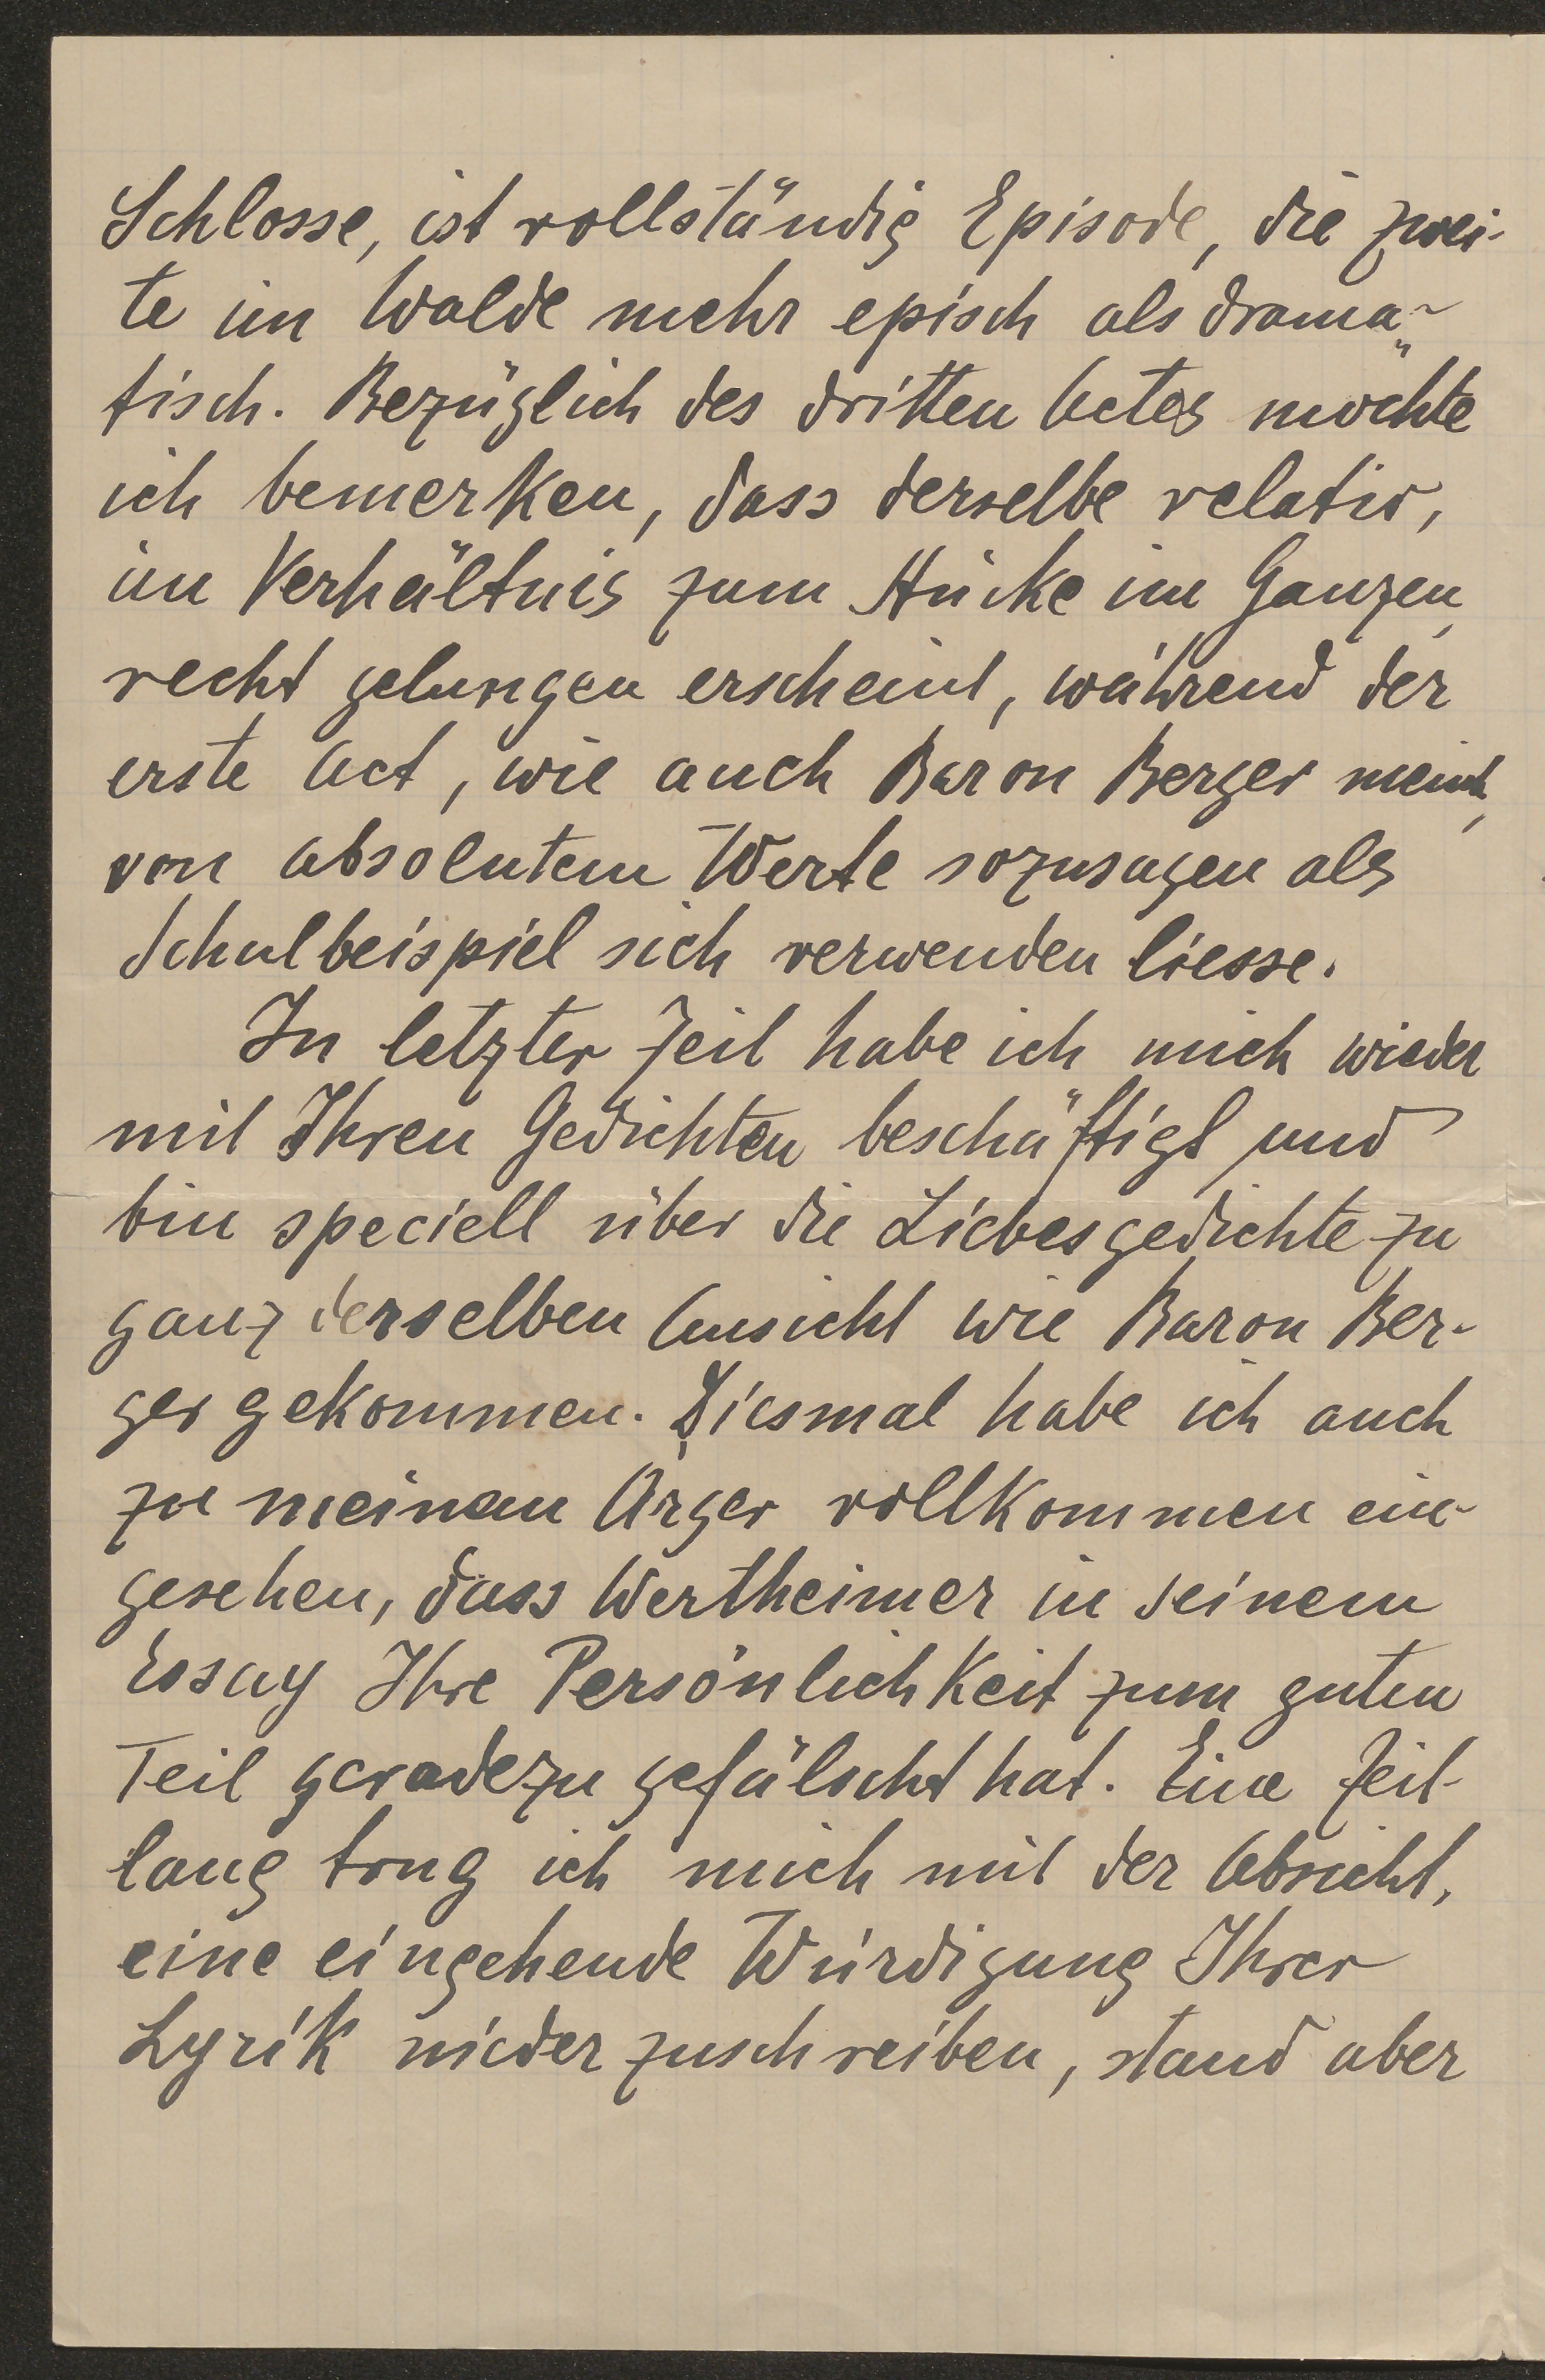 Schlosse, ist vollständig Episode, die zwei-
te im Walde mehr episch als drama-
tisch. Bezüglich des dritten Actes möchte
ich bemerken, dass derselbe relativ,
im Verhältnis zum Stücke im Ganzen,
recht gelungen erscheint, während der
erste Act, wie auch Baron Berger meint,
von absolutem Werte sozusagen als
Schulbeispiel sich verwenden liesse.
In letzter Zeit habe ich mich wieder
mit Ihren Gedichten beschäftigt und
bin speciell über die Liebesgedichte zu
ganz derselben Ansicht wie Baron Ber-
ger gekommen. Diesmal habe ich auch
zu meinem Ärger vollkommen ein-
gesehen, dass Wertheimer in seinem
Essay Ihre Persönlichkeit zum guten
Teil geradezu gefälscht hat. Eine Zeit-
lang trug ich mich mit der Absicht,
eine eingehende Würdigung Ihrer
Lyrik niederzuschreiben, stand aber